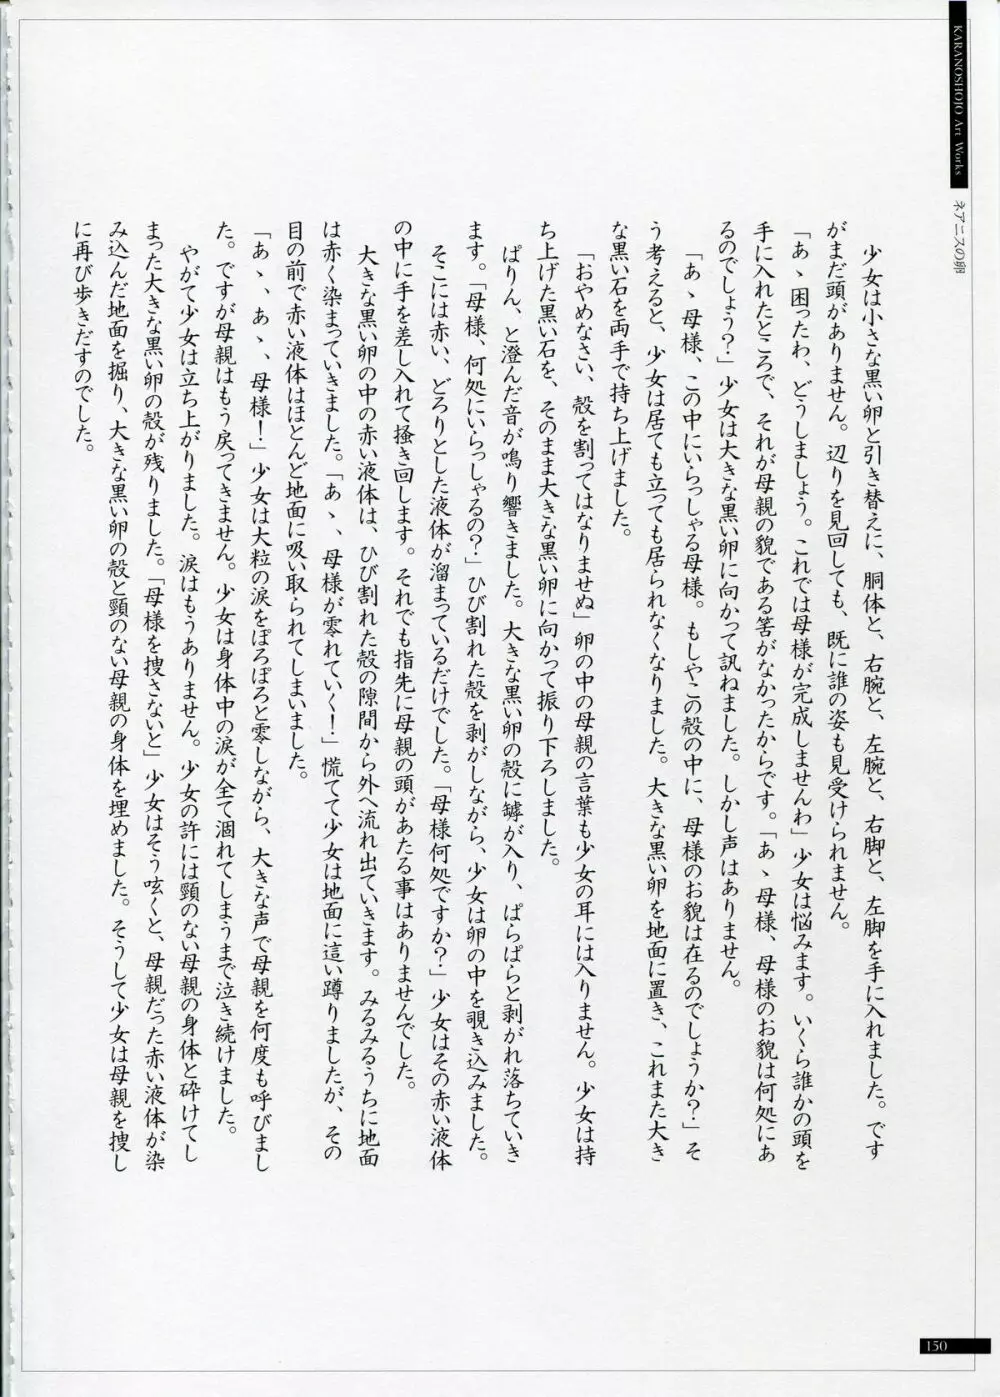 KARANOSHOJO Art Works
ネアニスの卵
少女は小さな黒い卵と引き替えに、胴体と、右腕と、左腕と、右脚と、左脚を手に入れました。です
がまだ頭がありません。辺りを見回しても、既に誰の姿も見受けられません。
「あゝ困ったわ、どうしましょう。これでは母様が完成しませんわ」少女は悩みます。いくら誰かの頭を
手に入れたところで、それが母親の貌である筈がなかったからです。「あゝ母様、母様のお貌は何処にあ
るのでしょう?」少女は大きな黒い卵に向かって訊ねました。しかし声はありません。
「あゝ母様、この中にいらっしゃる母様。もしやこの殻の中に、母様のお貌は在るのでしょうか?」そ
う考えると、少女は居ても立っても居られなくなりました。大きな黒い卵を地面に置き、これまた大き
な黒い石を両手で持ち上げました。
「おやめなさい、殻を割ってはなりませぬ」卵の中の母親の言葉も少女の耳には入りません。少女は持
ち上げた黒い石を、そのまま大きな黒い卵に向かって振り下ろしました。
ぱりん、と澄んだ音が鳴り響きました。大きな黒い卵の殻に罅が入り、ぱらぱらと剥がれ落ちていき
ます。「母様、何処にいらっしゃるの?」ひび割れた殻を剥がしながら、少女は卵の中を覗き込みました。
そこには赤い、どろりとした液体が溜まっているだけでした。「母様何処ですか?」少女はその赤い液体
の中に手を差し入れて掻き回します。それでも指先に母親の頭があたる事はありませんでした。
大きな黒い卵の中の赤い液体は、ひび割れた殻の隙間から外へ流れ出ていきます。みるみるうちに地面
は赤く染まっていきました。「あゝ、母様が零れていく!」慌てて少女は地面に這い蹲りましたが、その
目の前で赤い液体はほとんど地面に吸い取られてしまいました。
「あゝ、あゝ、母様!」少女は大粒の涙をぽろぽろと零しながら、大きな声で母親を何度も呼びまし
た。ですが母親はもう戻ってきません。少女は身体中の涙が全て涸れてしまうまで泣き続けました。
やがて少女は立ち上がりました。涙はもうありません。少女の許には頸のない母親の身体と砕けてし
まった大きな黒い卵の殻が残りました。「母様を捜さないと」少女はそう呟くと、母親だった赤い液体が染
み込んだ地面を掘り、大きな黒い卵の殻と頸のない母親の身体を埋めました。そうして少女は母親を捜し
に再び歩きだすのでした。
150